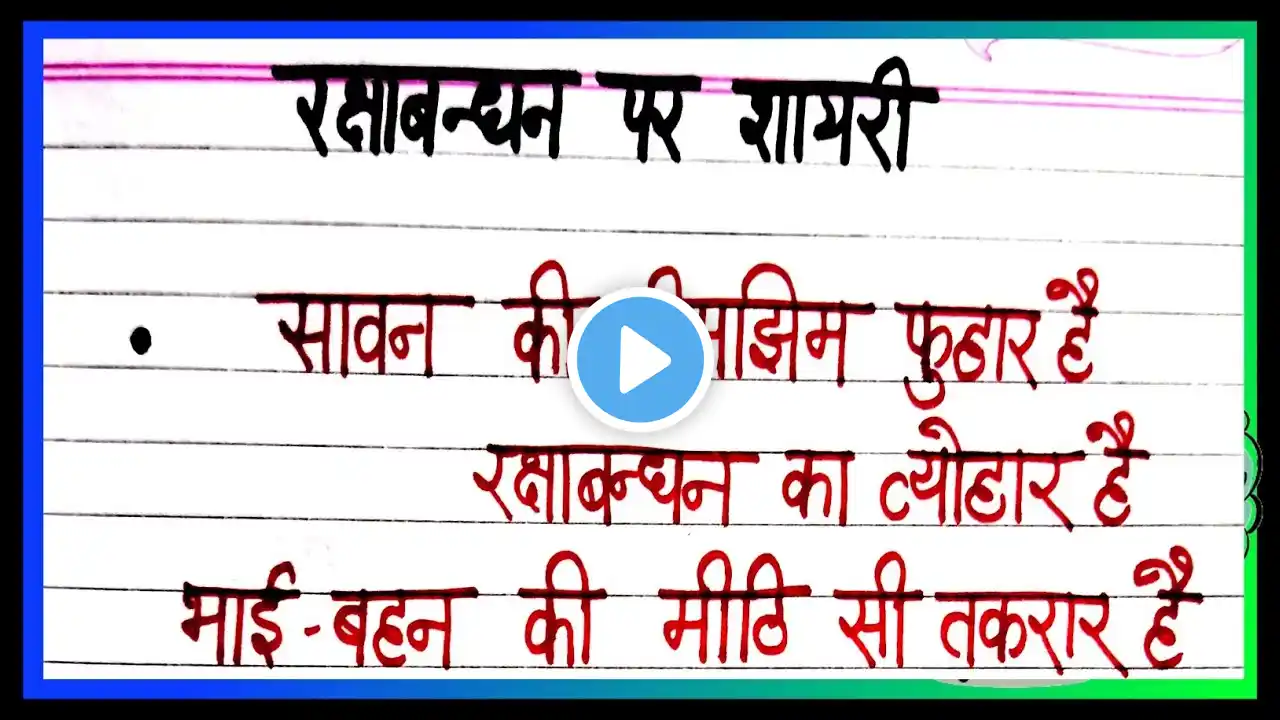 रक्षाबन्धन पर शायरी
• सावन की फुहार है
रक्षाबन्धन का त्योहार है
भाई-बहन की मीठि सी तकरार है